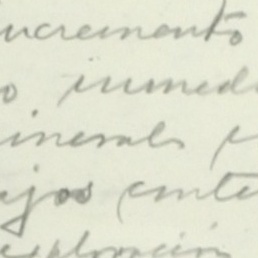 incremento
o inmedi
inerales y
ajos conte
exploración